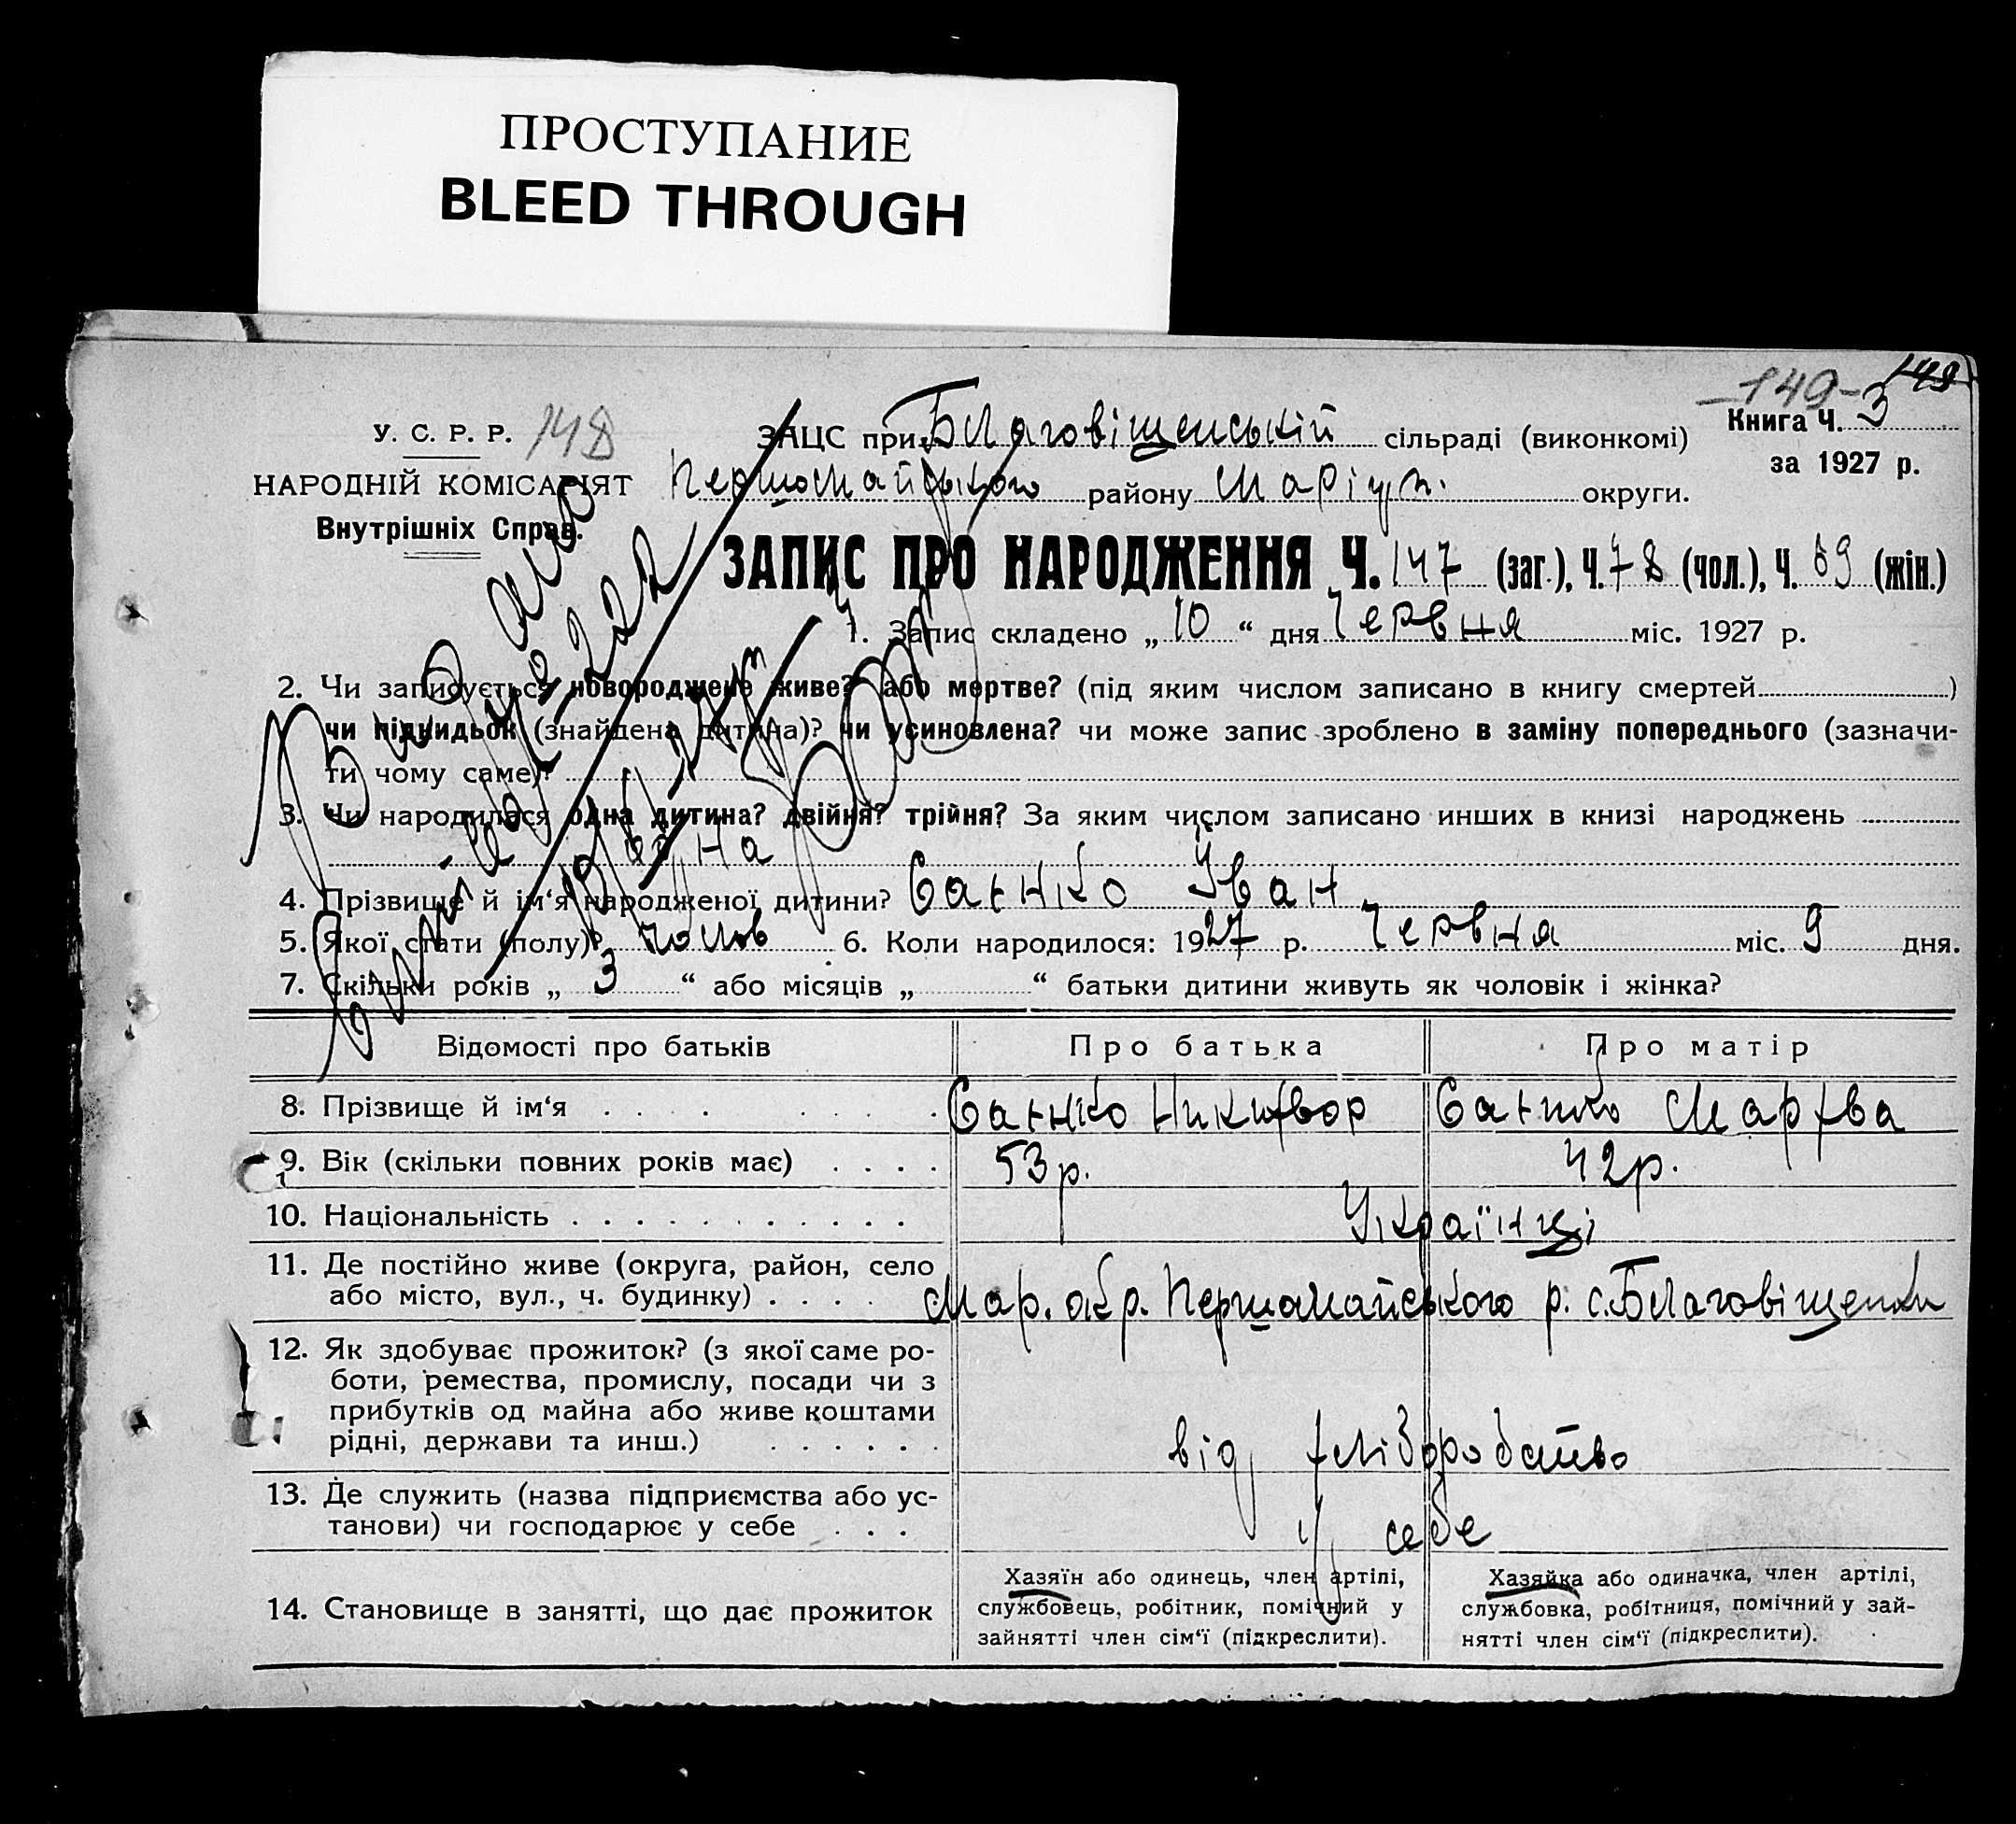 ПРОСТУПАНИЕ
BLEED THROUGH
-149- 149
У. С. Р. Р. 148
НАРОДНІЙ КОМІСАРІЯТ
Внутрішніх Справ.
ЗАЦС при Благовіщенській сільраді (виконкомі)
Книга Ч. 3
за 1927 р.
Першомайського району Маріуп. округи.
ЗАПИС ПРО НАРОДЖЕННЯ Ч. 147 (заг.), Ч. 78 (чол.), Ч. 69 (жін.)
1. Запис складено „ 10 “ дня Червня міс. 1927 р.
2. Чи записується новороджене живе? або мертве? (під яким числом записано в книгу смертей )
чи підкидьок (знайдена дитина)? чи усиновлена? чи може запис зроблено в заміну попереднього (зазначи-
ти чому саме)?
3. Чи народилася одна дитина? двійня? трійня? За яким числом записано инших в книзі народжень
одна
4. Прізвище й ім‘я народженої дитини? Саєнко Іван
5. Якої стати (полу)? чолов 6. Коли народилося: 1927 р. Червня міс. 9 дня.
7. Скільки років „ 3 “ або місяців „ “ батьки дитини живуть як чоловік і жінка?
Відомості про батьків Про батька Про матір
8. Прізвище й ім‘я Саєнко Никифор Саєнко Марфа
9. Вік (скільки повних років має) 53 р. 42 р.
10. Національність Українці
11. Де постійно живе (округа, район, село
або місто, вул., ч. будинку) Мар. окр. Першомайського р. с. Благовіщенки
12. Як здобуває прожиток? (з якої саме ро-
боти, ремества, промислу, посади чи з
прибутків од майна або живе коштами
рідні, держави та инш.) від хліборобство
13. Де служить (назва підприємства або ус-
танови) чи господарює у себе у себе
14. Становище в занятті, що дає прожиток
Хазяїн або одинець, член артілі,
службовець, робітник, помічний у
зайнятті член сім‘ї (підкреслити).
Хазяйка або одиначка, член артілі,
службовка, робітниця, помічний у зай-
нятті член сім‘ї (підкреслити).